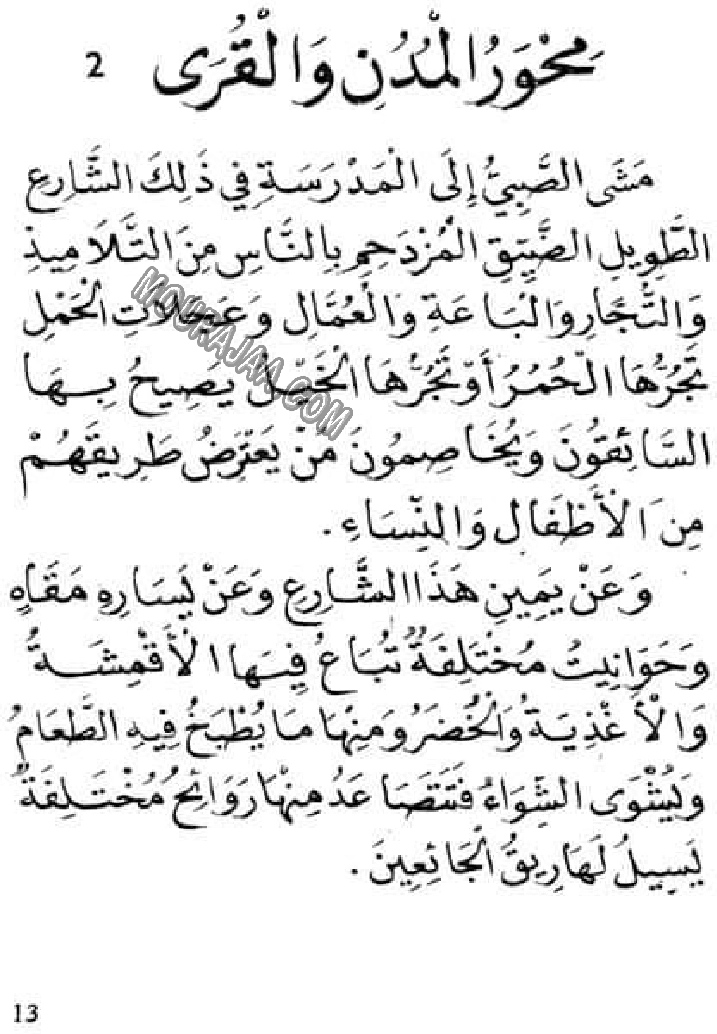 مَحْوَرُ الْمُدُنِ وَالْقُرَى 2
مَشَى الصَّبِيُّ إِلَى الْمَدْرَسَةِ فِي ذَلِكَ الشَّارِعِ
الطَّوِيلِ الضَّيِّقِ الْمُزْدَحِمِ بِالنَّاسِ مِنَ التَّلَامِيذِ
وَالتُّجَّارِ وَالْبَاعَةِ وَالْعُمَّالِ وَعَجَلَاتِ الْحَمْلِ
تَجُرُّهَا الْحُمُرُ أَوْ تَجُرُّهَا الْخَيْلُ يَصِيحُ بِهَا
السَّائِقُونَ وَيُخَاصِمُونَ مَنْ يَعْتَرِضُ طَرِيقَهُمْ
مِنَ الْأَطْفَالِ وَالنِّسَاءِ .
وَعَنْ يَمِينِ هَذَا الشَّارِعِ وَعَنْ يَسَارِهِ مَقَاهٍ
وَحَوَانِيتُ مُخْتَلِفَةٌ تُبَاعُ فِيهَا الْأَقْمِشَةُ
وَالْأَغْذِيَةُ وَالْخُضَرُ وَمِنْهَا مَا يُطْبَخُ فِيهِ الطَّعَامُ
وَيُشْوَى الشِّوَاءُ فَتَتَصَاعَدُ مِنْهَا رَوَائِحُ مُخْتَلِفَةٌ
يَسِيلُ لَهَا رِيقُ الْجَائِعِينَ .
MOURAJAA.COM
13